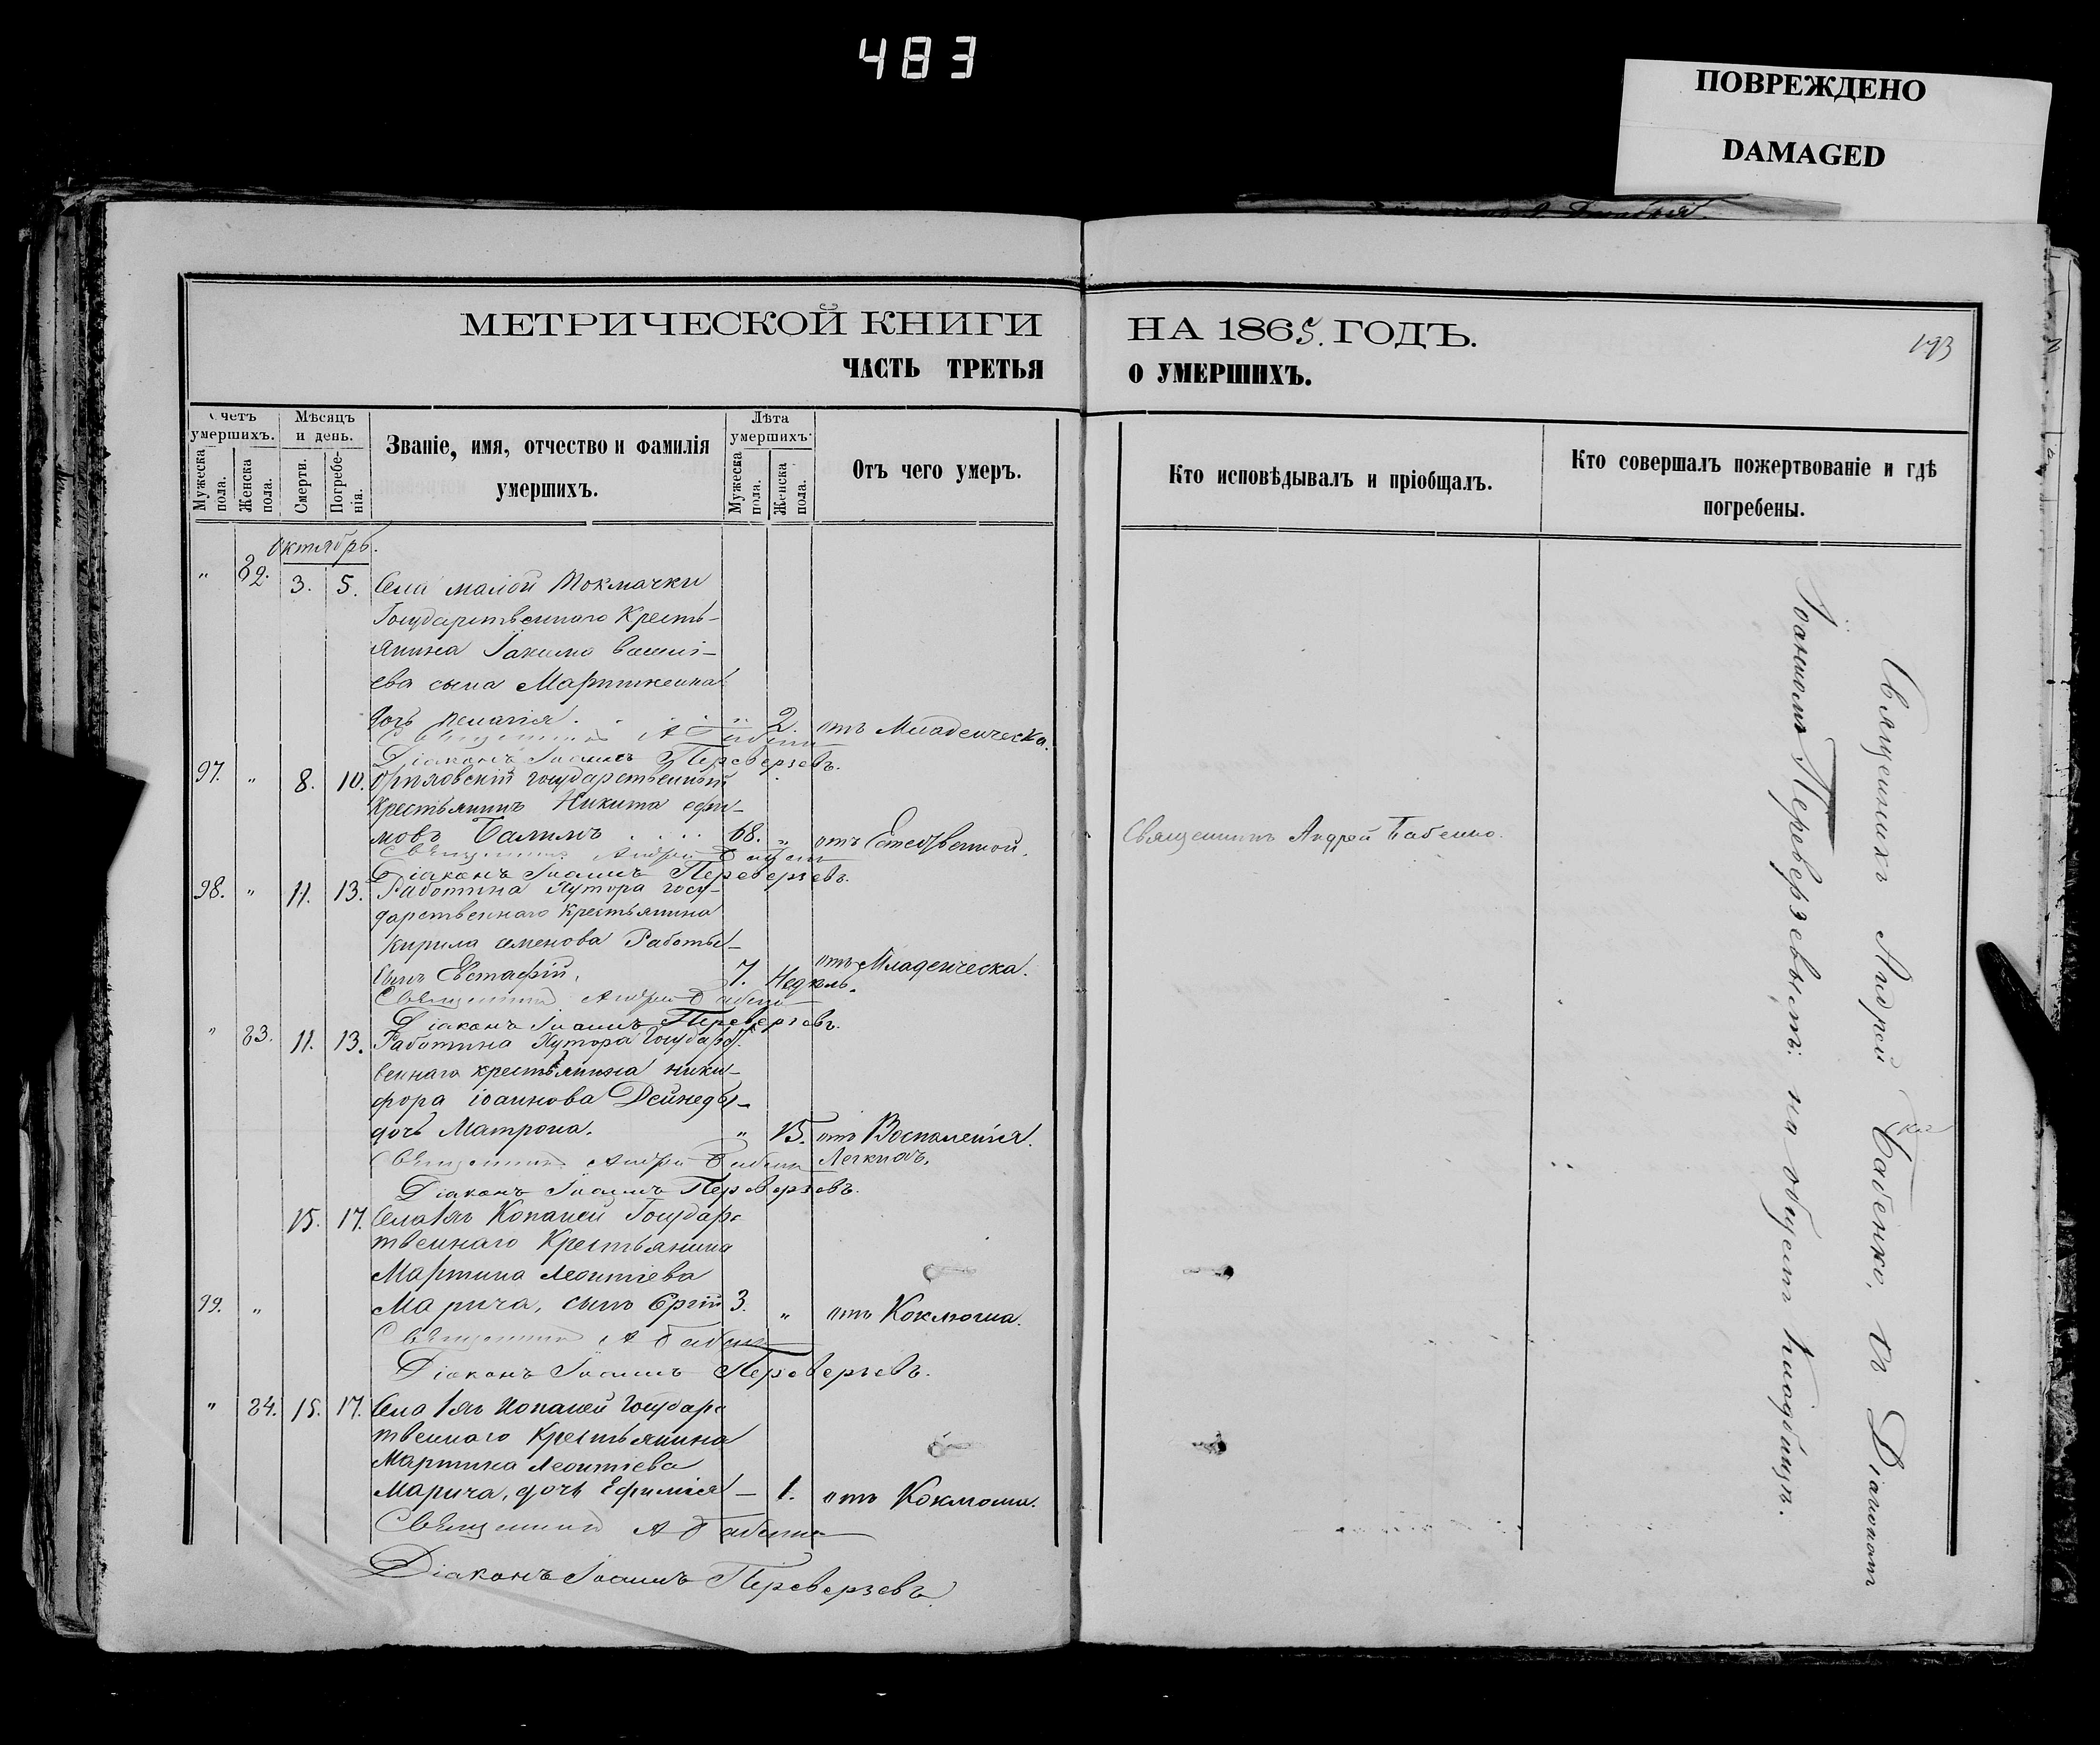 483
ПОВРЕЖДЕНО
DAMAGED
МЕТРИЧЕСКОЙ КНИГИ НА 1865. ГОДЪ.
193
ЧАСТЬ ТРЕТЬЯ О УМЕРШИХЪ.
Счетъ умершихъ.
Мужеска пола.
Женска пола.
Мѣсяцъ и день.
Смерти.
Погребенія.
Званіе, имя, отчество и фамилія умершихъ.
Лѣта умершихъ.
Мужеска пола.
Женска пола.
Отъ чего умеръ.
Кто исповѣдывалъ и пріобщалъ.
Кто совершалъ пожертвованіе и гдѣ погребены.
Октябрь.
" 82. 3. 5. Села малой Токмачки
Государственнаго Кресть-
янина Іакима
ева сына
дочь Пелагія. " 2. отъ Младенческа.
Священникъ А Бабенко
Діаконъ Іоаннъ Переверзевъ.
97. " 8. 10. Орѣховскій государственный
Крестьянинъ Никита ефи-
мовъ Балимъ 68. " отъ Естественной. Священникъ Андрей Бабенко.
Священникъ Андрей Бабенко
Діаконъ Іоаннъ Переверзевъ.
98. " 11. 13. Работина Хутора госу-
дарственнаго крестьянина
Кирила семенова Работы-
сынъ Евстафій. 7. Недѣль. отъ Младенческа.
Священникъ Андрей Бабенко
Діаконъ Іоаннъ Переверзевъ.
" 83. 11. 13. Работина Хутора Государст.
веннаго крестьянина ники-
фора іоаннова Дейнеды-
дочь Матрона. " 15. отъ Воспаленія
Легкихъ.
Священникъ Андрей Бабенко
Діаконъ Іоаннъ Переверзевъ.
15. 17. Села Копаней Государс
твеннаго Крестьянина
Мартина Леонтіева
99. " Марича, сынъ Сргій 3. " отъ Коклюша.
Священникъ А Бабенко
Діаконъ Іоаннъ Переверзевъ.
" 84. 15. 17. Села Копаней Государс
твеннаго Крестьянина
Мартина Леонтіева
Марича, дочь Ефимія - 1. отъ Коклюша.
Священникъ А Бабенко
Діаконъ Іоаннъ Переверзевъ.
Священникъ Андрей Бабенко, съ Діакономъ
Іоанномъ Переверзевымъ: на общемъ кладбищѣ.